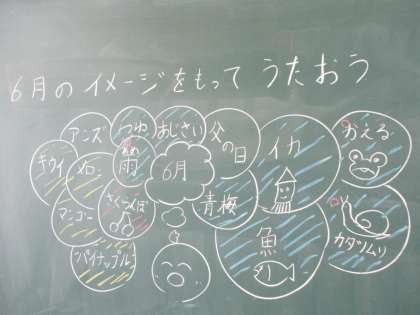 6月のイメージをもって うたおう
アンズ
つゆ
あじさい
父の日
イカ
かえる
キウイ
メロン
雨
6月
さくらんぼ
青梅
マンゴー
魚
カタツムリ
パイナップル